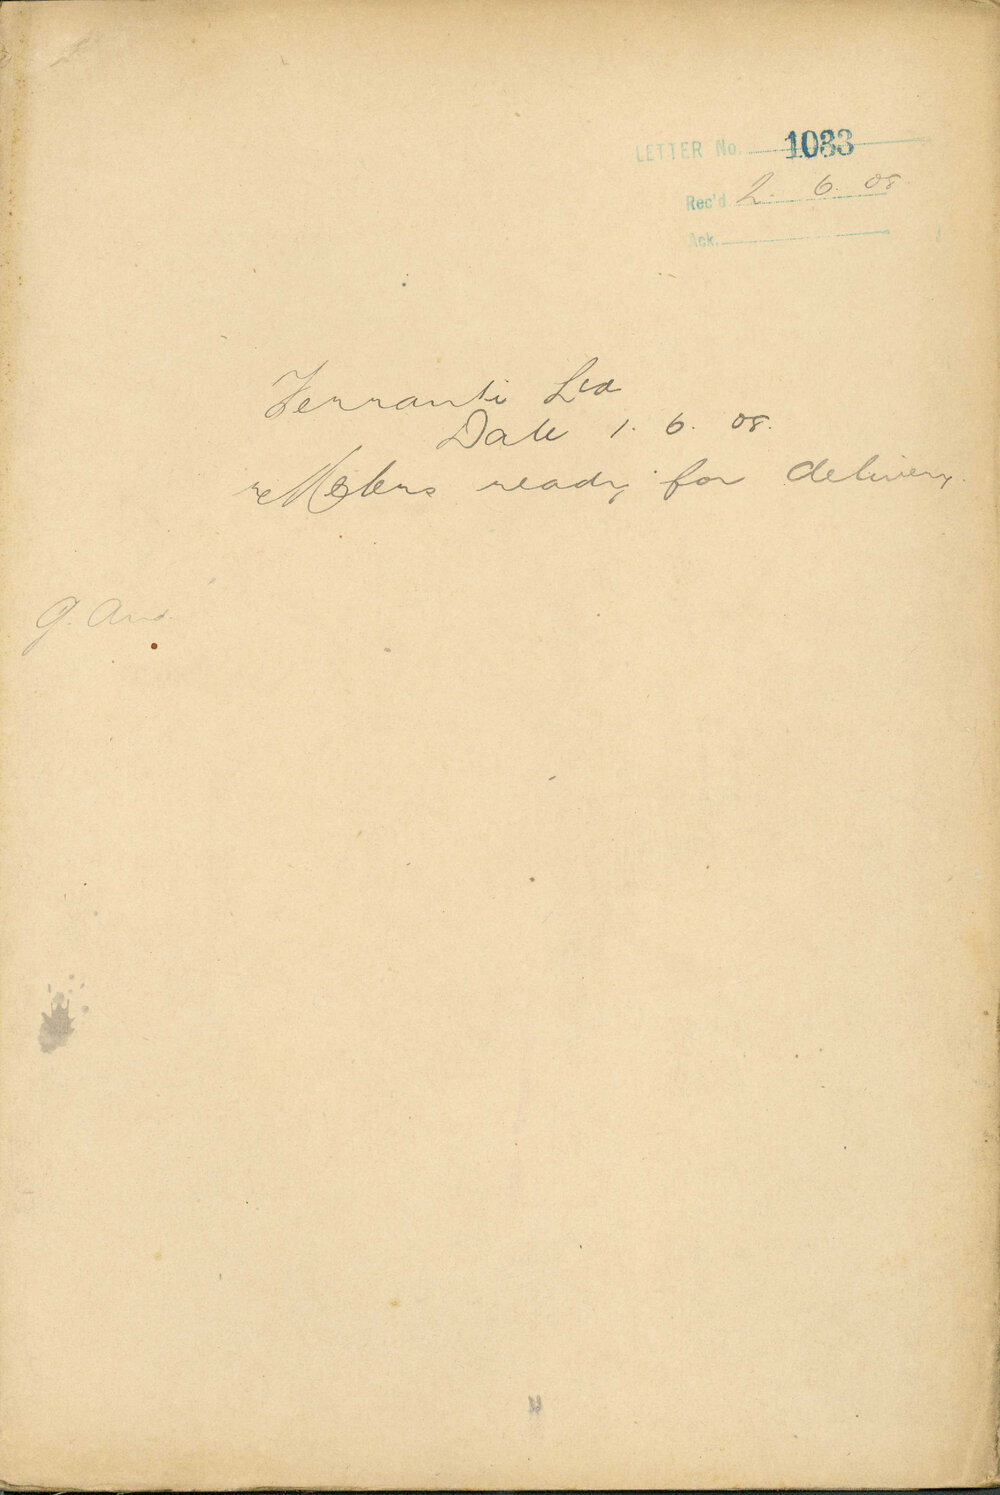 LETTER No. 1033
Rec'd. 2. 6. 08
Ack.
Ferranti Ltd
Date 1. 6. 08.
re Meters ready for delivery.